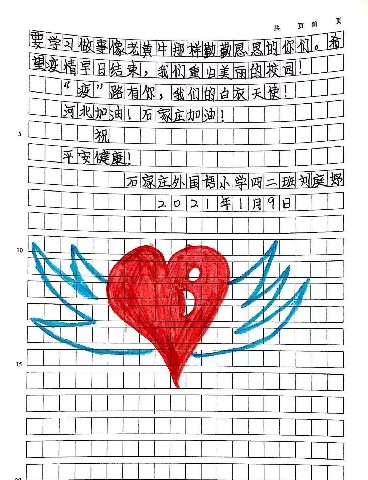 共 页 第 页
要学习做事像老黄牛那样勤勤恳恳的你们。希
望疫情早日结束，我们重归美丽的校园！
“疫”路有你，我们的白衣天使！
河北加油！石家庄加油！
5
祝
平安健康！
石家庄外国语小学四二班刘庭婷
2021年1月9日
10
15